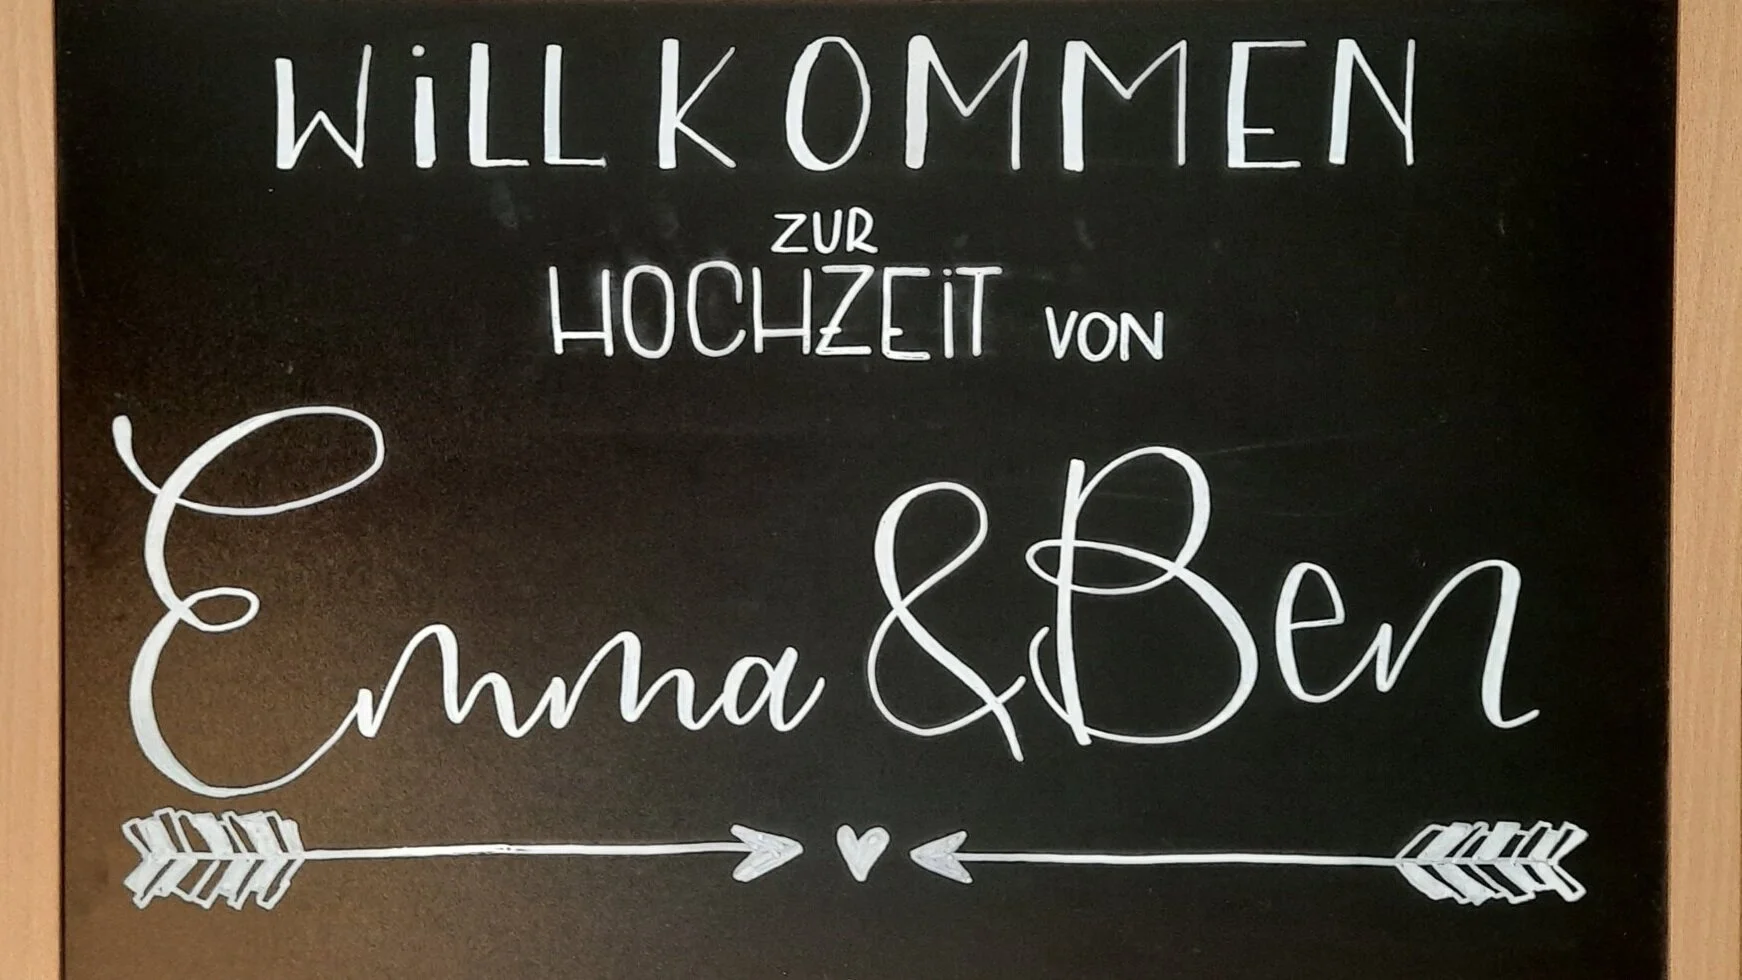 WiLLKOMMEN
ZUR
HOCHZEiT VON
Emma & Ben